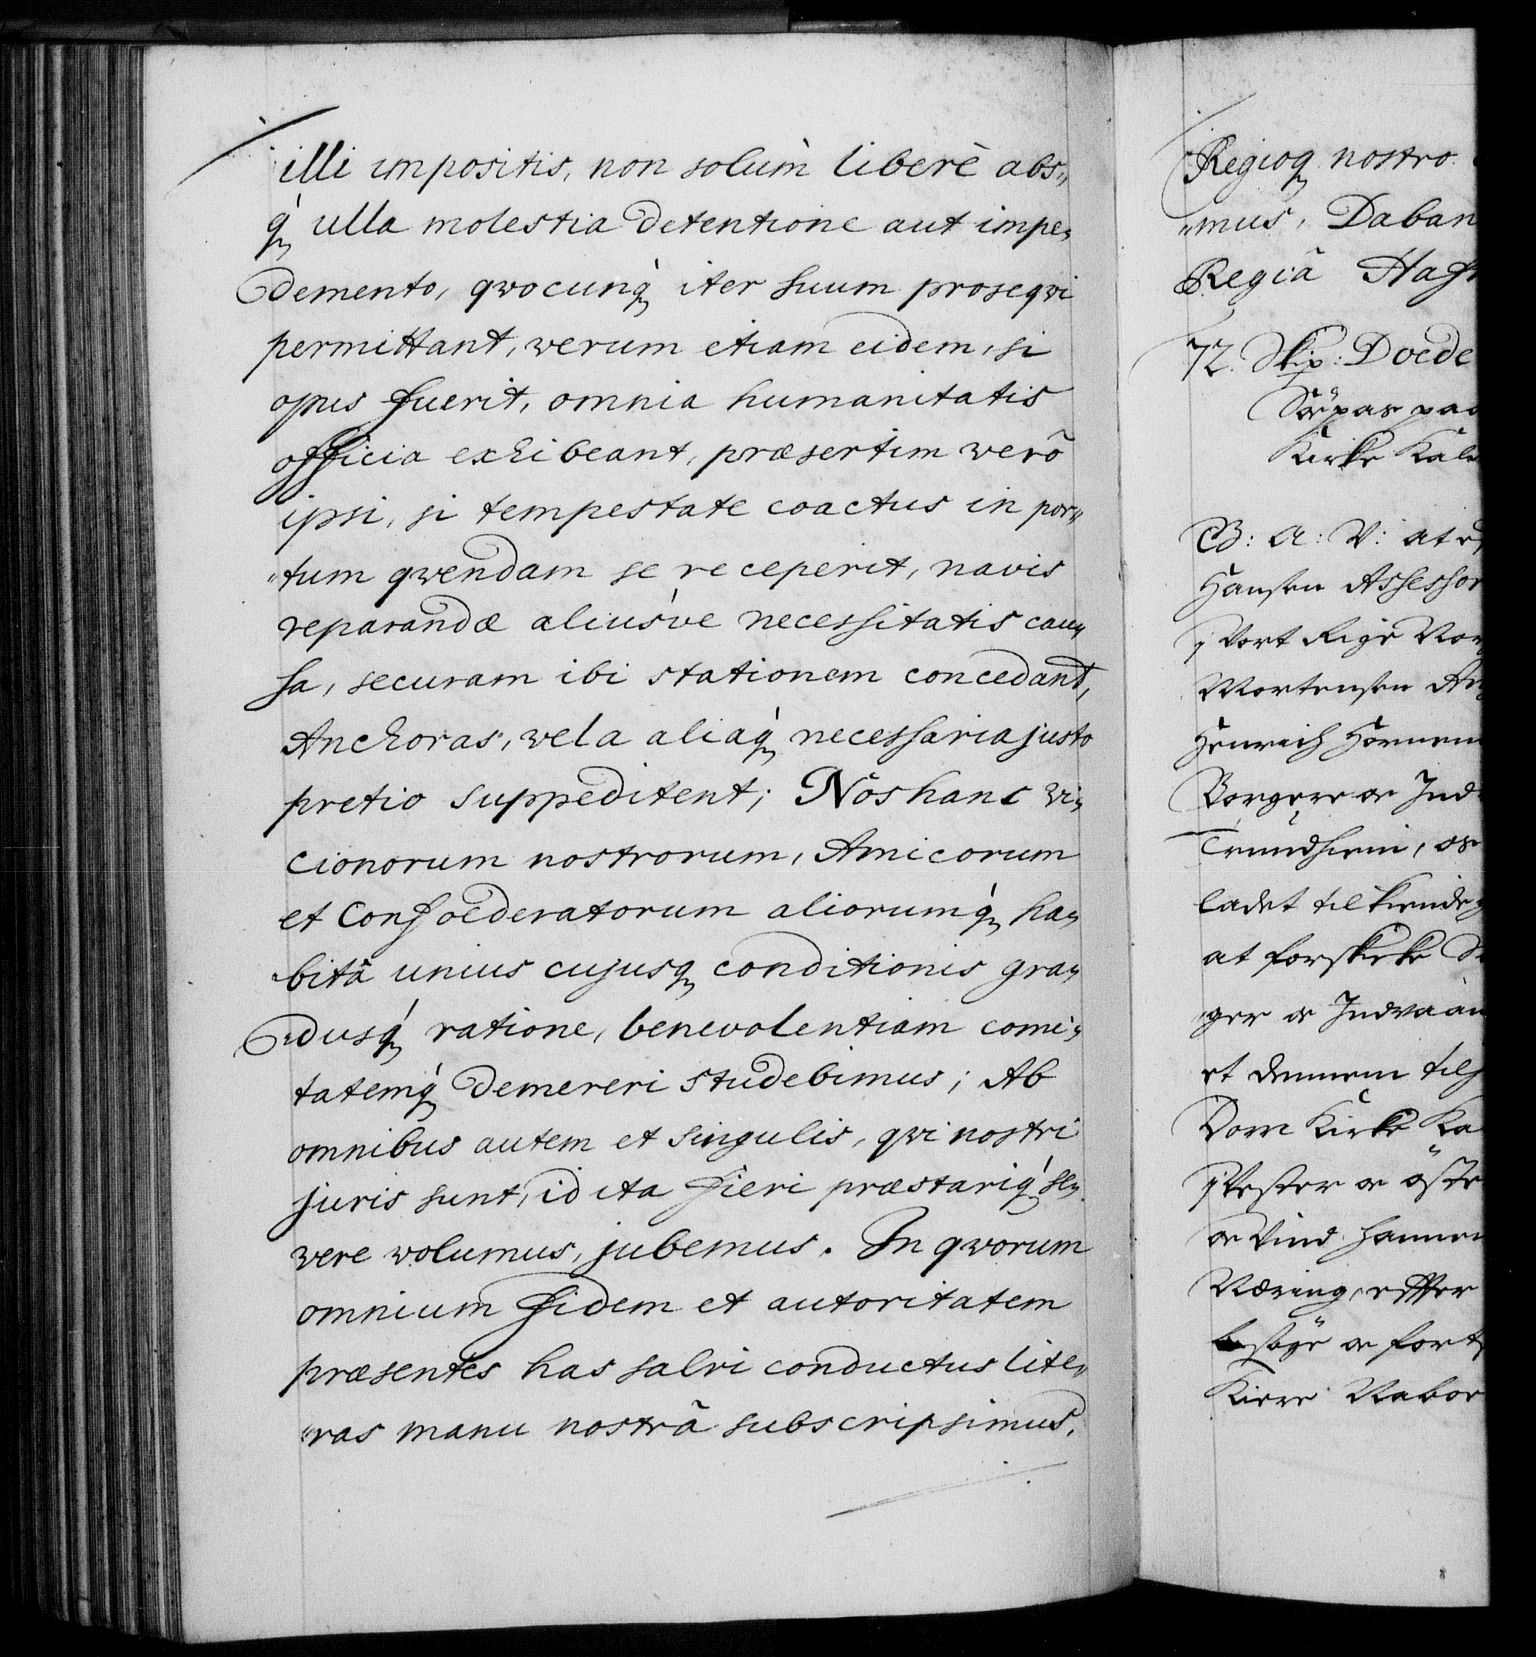 illi impositis, non solùm liberè abs„
q, ulla molestia detentione aut impe„
demento, qvocunq, iter suum proseqvi
permittant, verum etiam eidem, si
opus fuerit, omnia humanitatis
officia exhibeant, præsertim verõ
ipsi, si tempestate coactus in por„
„tum qvendam se receperit, navis
reparandæ aliusve necessitatis cau„
sa, securam ibi stationem concedant,
Anchoras, vela aliaq, necessaria justo
pretio suppeditent; Nos hanc vi„
cionorum nostrorum, Amicorum
et Confoederatorum aliorumq, ha„
bitâ unius cujusq, conditionis gra„
„dusq, ratione, benevolentiam comi„
tatemq, demereri studebimus; Ab
omnibus autem et singulis, qvi nostri
juris sunt, id ita fieri præstariq, se„
vere volumus, jubemus. In qvorum
omnium fidem et autoritatem
præsentes has salvi conductus lite„
„ras manu nostrâ subscripsimus,
Regioq, nostro
„mus, Daban
Regiâ Hafn
72. Skip: Doede
Söepas paa
Kirke Kald
C3: A: V: at
Hansen Assessor
i Vort Rige Nor
Mortensen An
Henrich Hornem
Borgere og Ind
Trundhiem, os
ladet tilkiende
at forskicke
„ger og Indvaan
et dennem tilh
Dom Kirke Ka
i Vester og öste
og
Næring, effter
og fort
Kiere Nabor